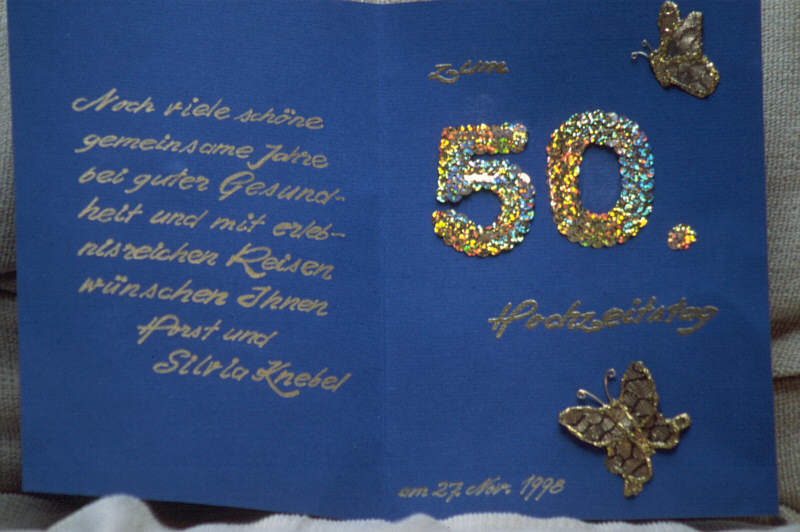 Noch viele schöne
gemeinsame Jahre
bei guter Gesund-
heit und mit erleb-
nisreichen Reisen
wünschen Ihnen
Horst und
Silvia Knebel
zum
50.
Hochzeitstag
am 27. Nov. 1998